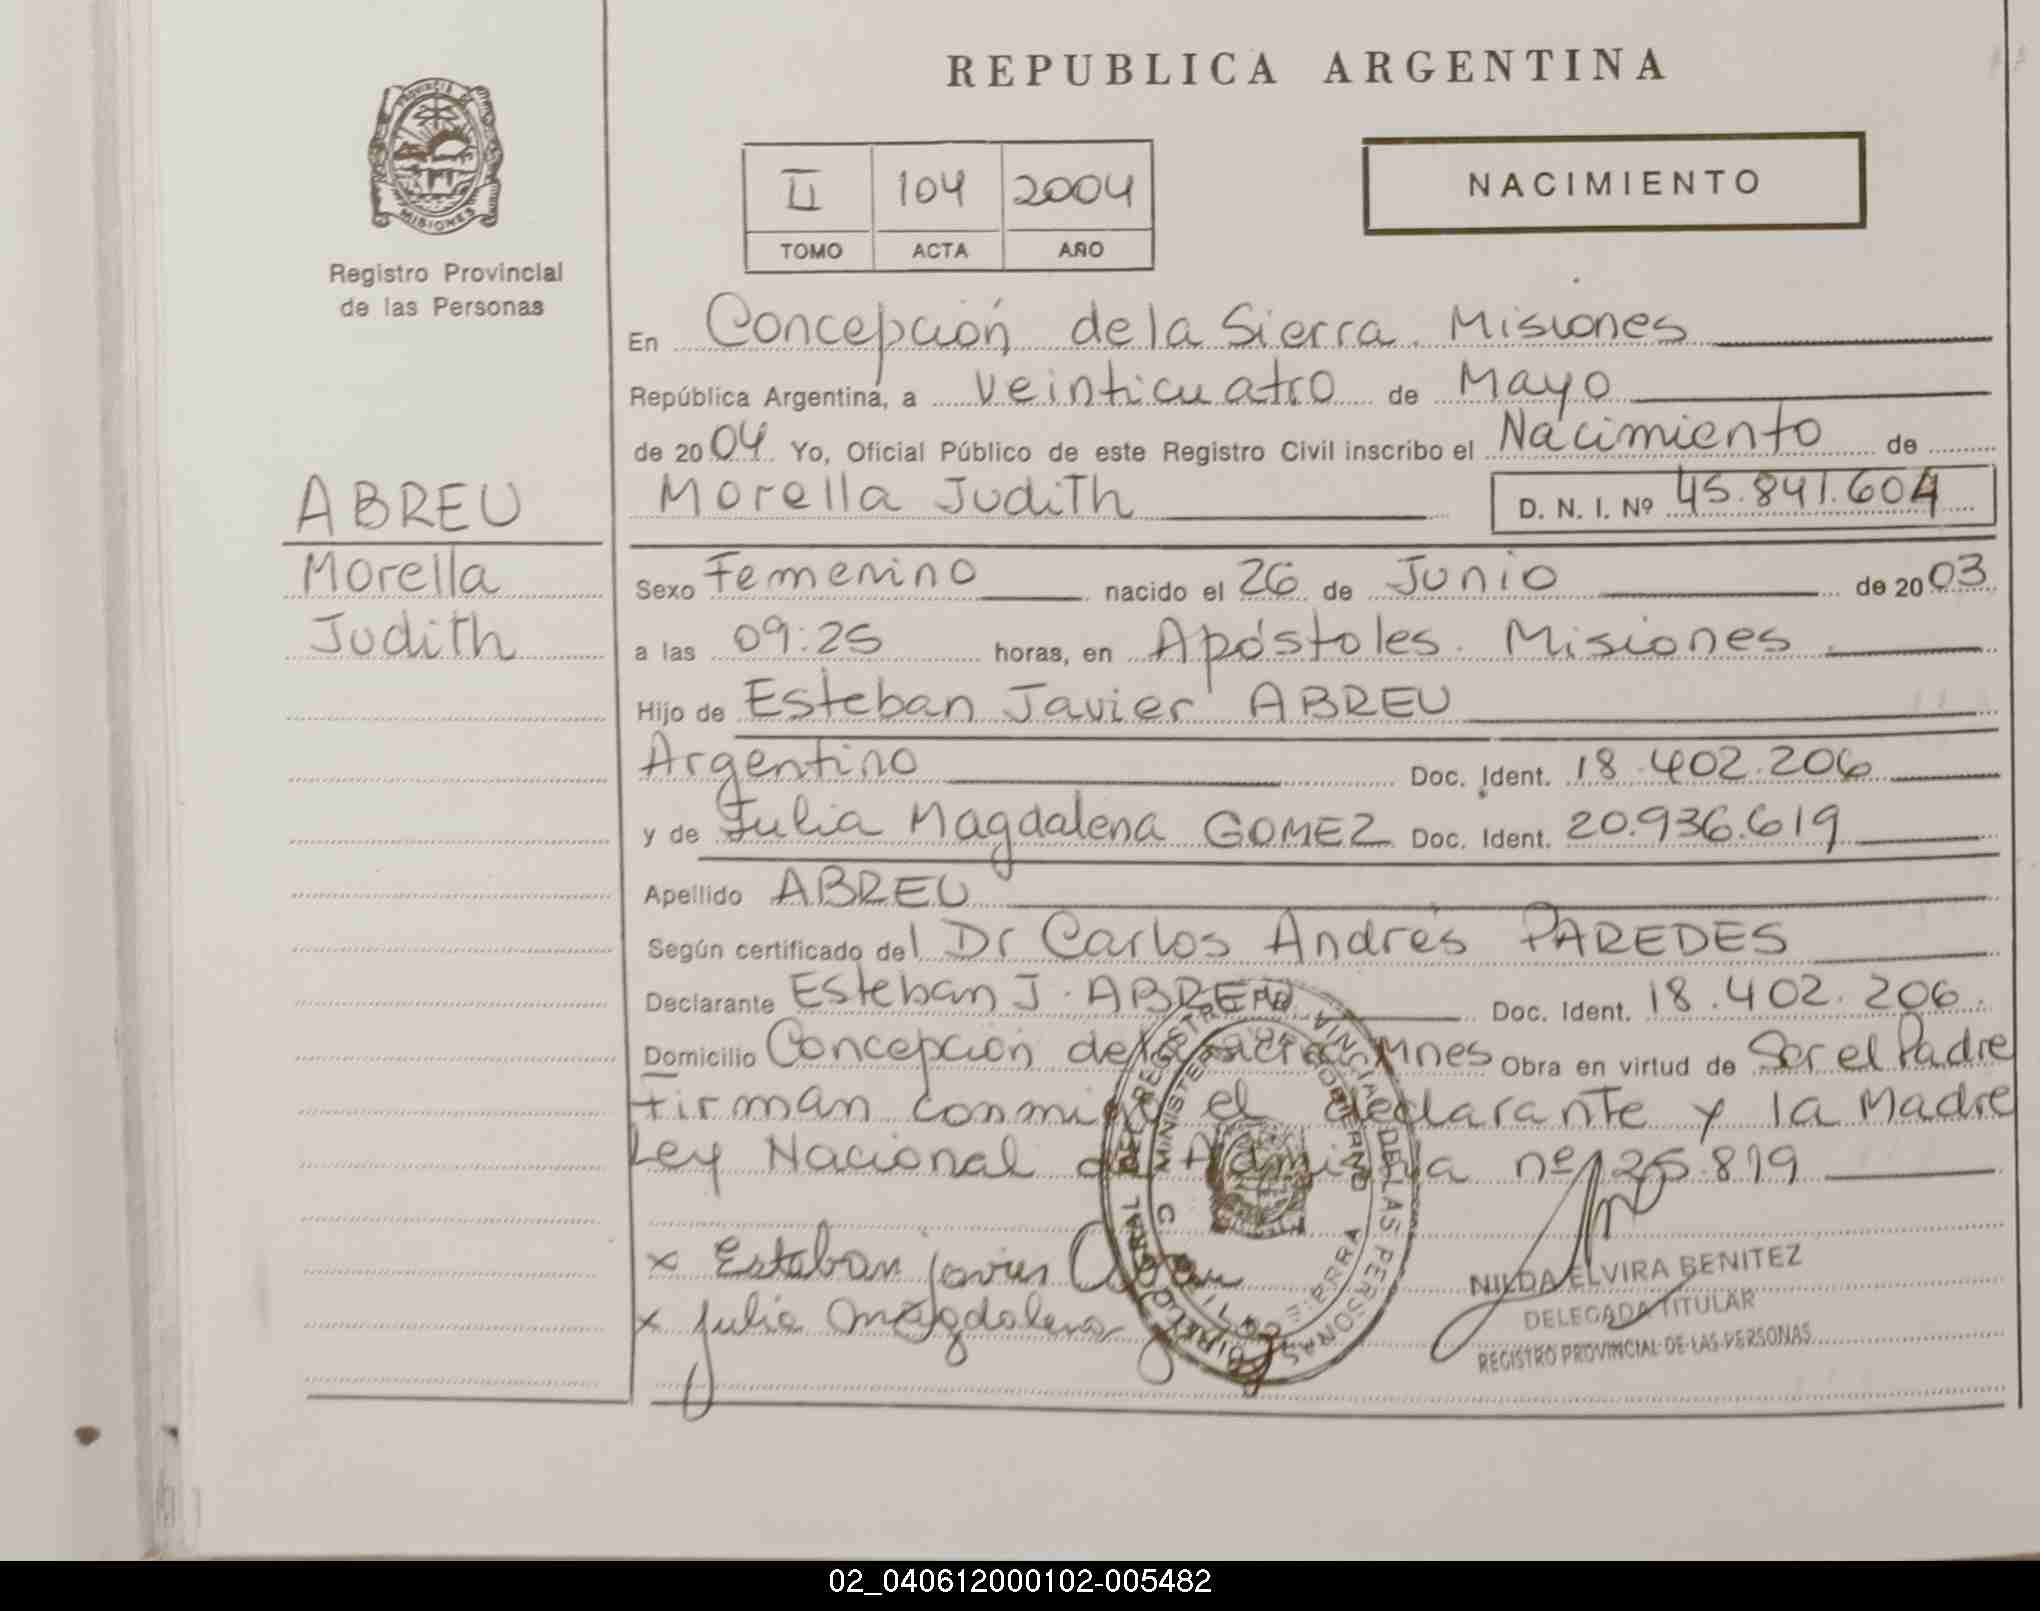 REPUBLICA ARGENTINA
PROVINCIA DE
MISIONES
Registro Provincial
de las Personas
II 104 2004
TOMO ACTA AÑO
NACIMIENTO
En Concepción de la Sierra. Misiones
República Argentina, a veinticuatro de Mayo
de 2004 Yo, Oficial Público de este Registro Civil inscribo el Nacimiento de
Morella Judith D. N. I. Nº 45.841.604
ABREU
Morella
Judith
Sexo Femenino nacido el 26 de Junio de 2003
a las 09:25 horas, en Apóstoles. Misiones
Hijo de Esteban Javier ABREU
Argentino Doc. Ident. 18.402.206
y de Julia Magdalena GOMEZ Doc. Ident. 20.936.619
Apellido ABREU
Según certificado del Dr Carlos Andrés PAREDES
Declarante Esteban J. ABREU Doc. Ident. 18.402.206
Domicilio Concepción de la Sierra Mnes Obra en virtud de Ser el Padre
Firman conmigo el declarante y la Madre
Ley Nacional de Admisiva nº 25.819
x Esteban javier Abreu
x julia magdalena
NILDA ELVIRA BENITEZ
DELEGADA TITULAR
REGISTRO PROVINCIAL DE LAS PERSONAS
02_040612000102-005482